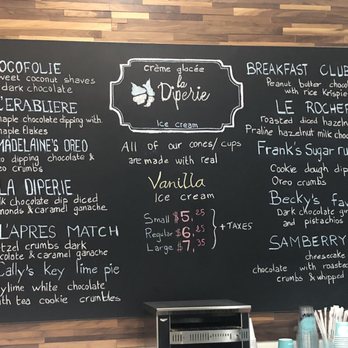 OCOFOLIE
weet coconut shaves
dark chocolate
L'ERABLIERE
aple chocolate dipping with
aple flakes
MADELAINE'S OREO
eo dipping chocolate &
eo crumbs
LA DIPERIE
lk chocolate dip diced
monds & caramel ganache
L'APRES MATCH
etzel crumbs dark
ocolate & caramel ganache
Cally's key lime pie
ylime white chocolate
th tea cookie crumbles
crème glacée
la
Diperie
Ice cream
All of our cones/cups
are made with real
Vanilla
Ice cream
Small $5,25
Regular $6,25
Large $7,35
+ TAXES
BREAKFAST CLUB
Peanut butter choco
with rice krispie
LE ROCHER
roasted diced hazeln
Praline hazelnut milk choco
Frank's Sugar ru
Cookie dough dip
Oreo crumbs
Becky's fav
Dark chocolate gr
and pistachios
SAMBERRY
cheesecake
chocolate with roasted
crumbs &